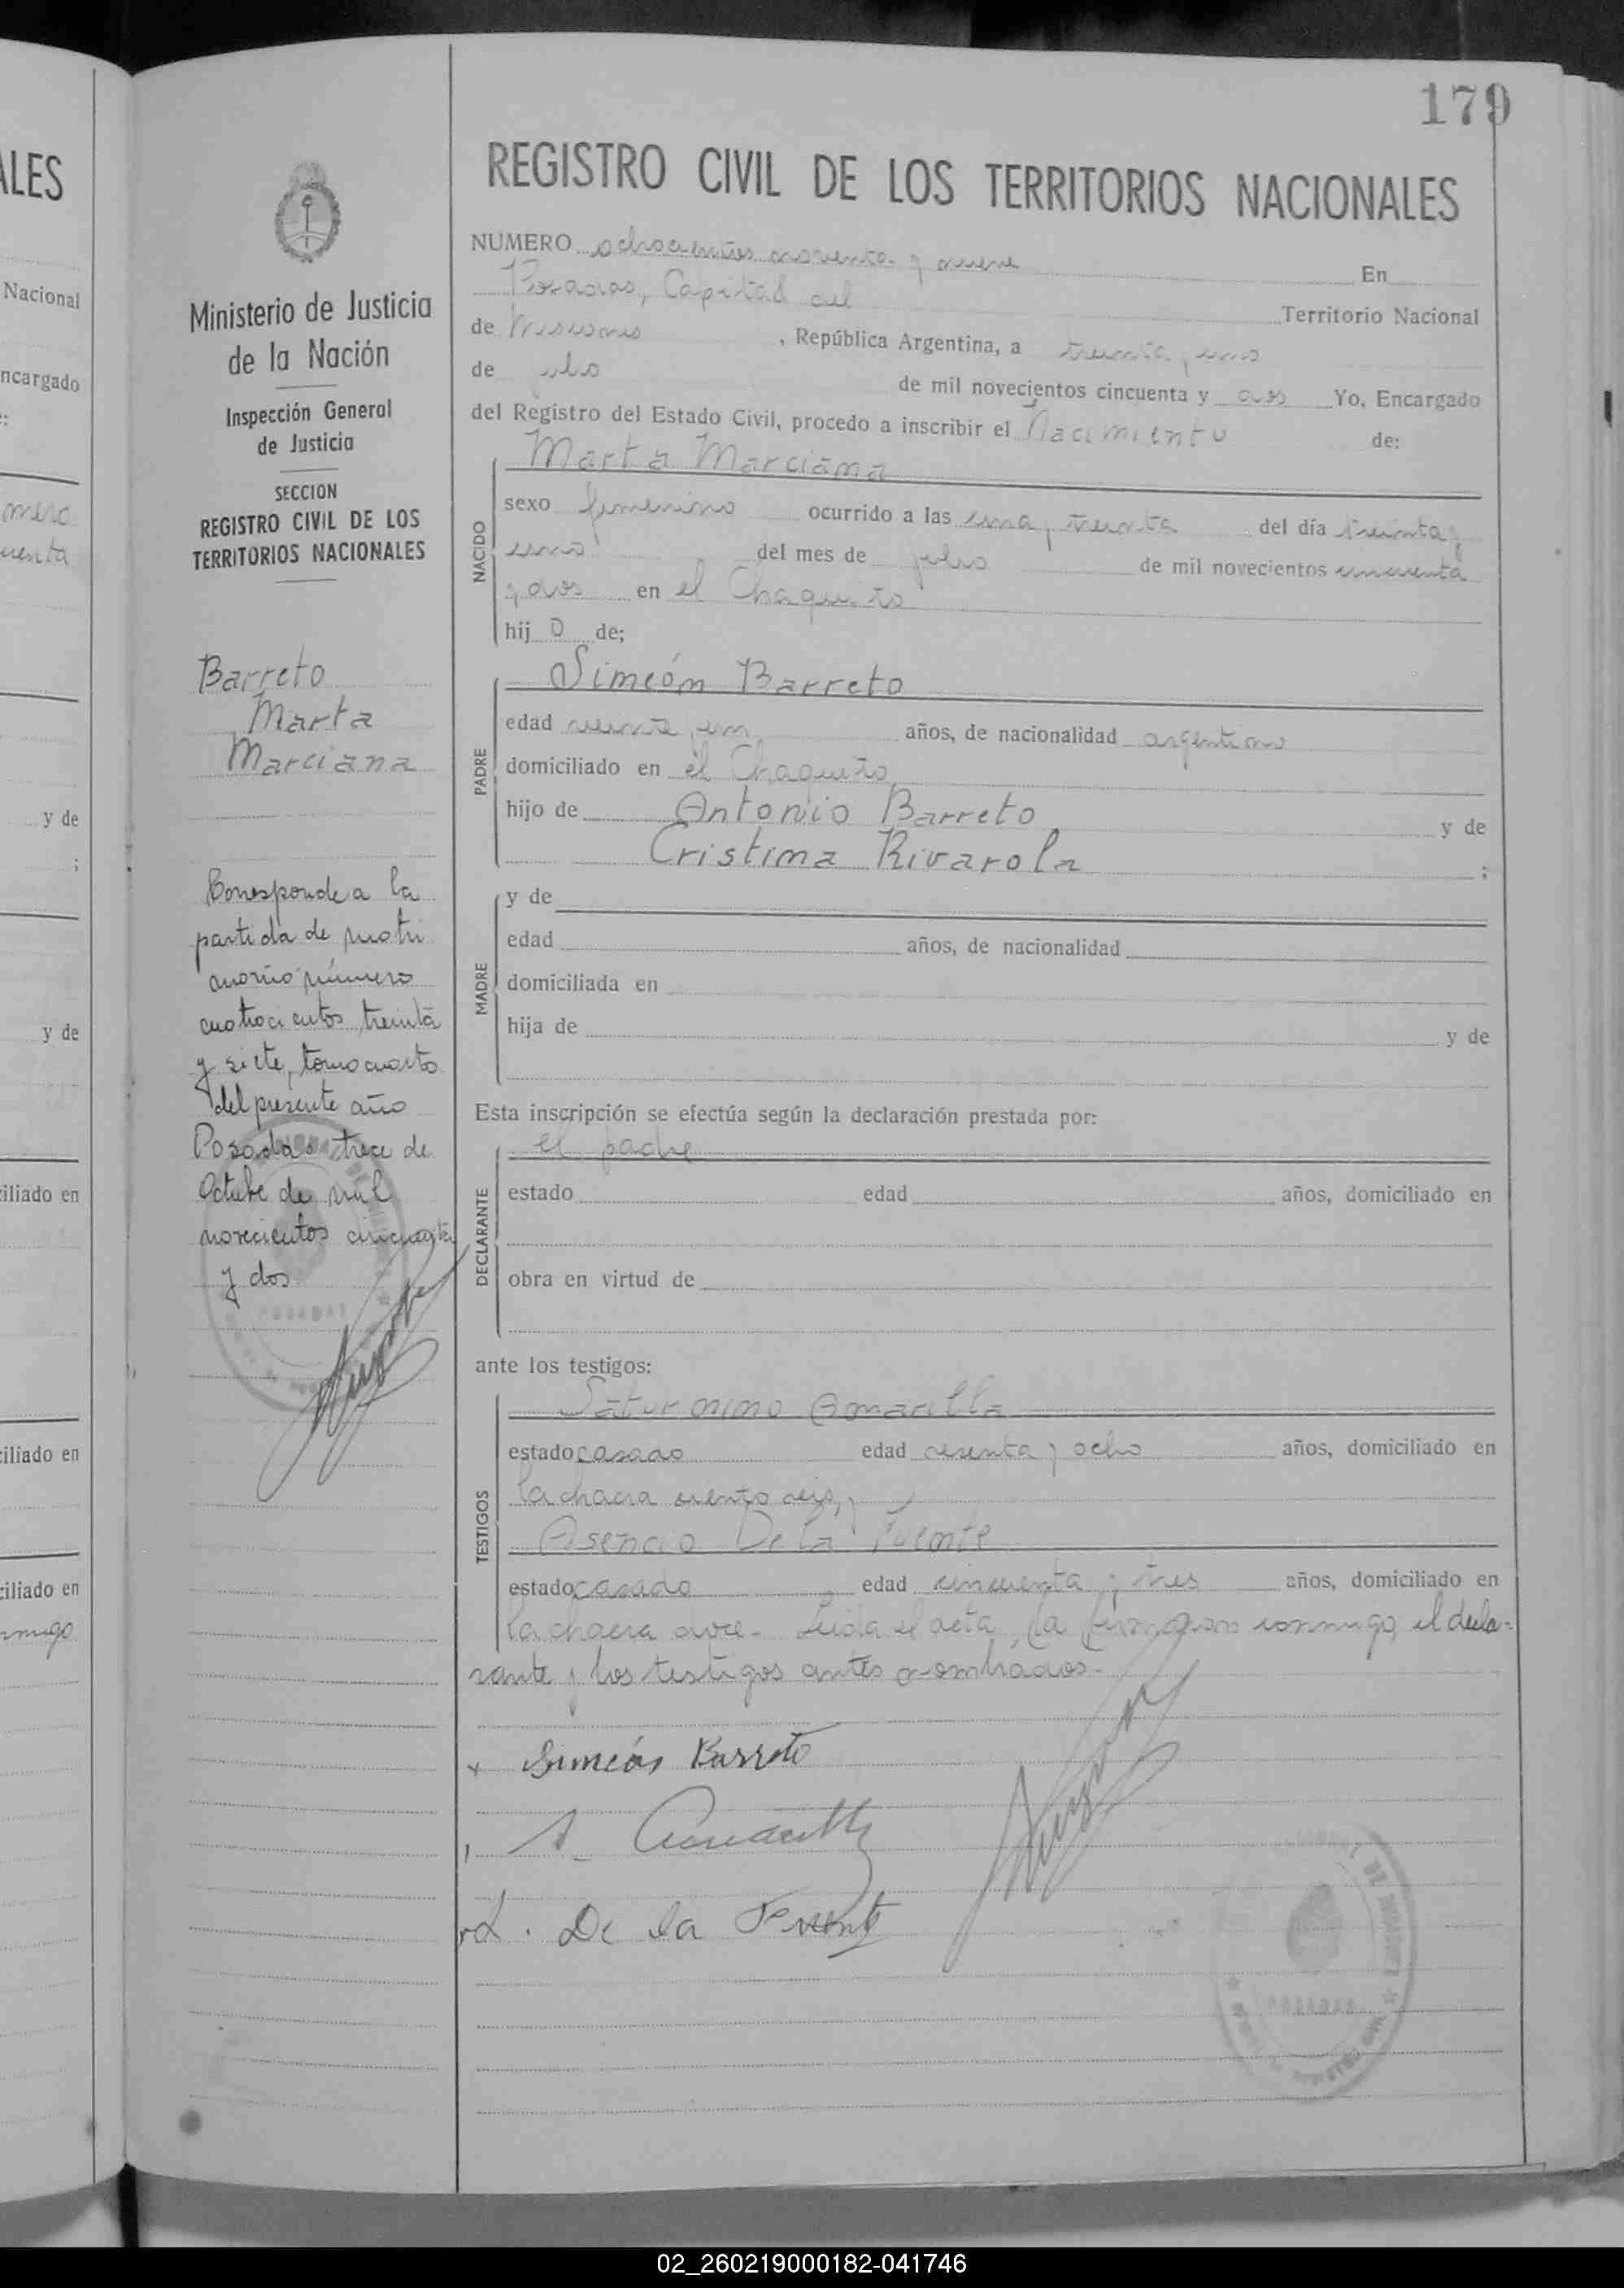 179
REGISTRO CIVIL DE LOS TERRITORIOS NACIONALES
NUMERO ochocientos noventa y nueve En
Posadas, Capital del Territorio Nacional
de Misiones, República Argentina, a treinta y uno
de julio de mil novecientos cincuenta y dos Yo, Encargado
del Registro del Estado Civil, procedo a inscribir el Nacimiento de:
NACIDO
Marta Marciana
sexo femenino ocurrido a las una y treinta del día treinta y
uno del mes de julio de mil novecientos cincuenta
y dos en el Chaquito
hij o de;
PADRE
Simeón Barreto
edad veinte y un años, de nacionalidad argentino
domiciliado en el Chaquito
hijo de Antonio Barreto y de
Cristina Rivarola ;
MADRE
y de
edad años, de nacionalidad
domiciliada en
hija de y de
Esta inscripción se efectúa según la declaración prestada por:
DECLARANTE
el padre
estado edad años, domiciliado en
obra en virtud de
ante los testigos:
TESTIGOS
Saturnino Amarilla
estado casado edad sesenta y ocho años, domiciliado en
la chacra ciento seis, y
Asencio De la Fuente
estado casado edad cincuenta y tres años, domiciliado en
la chacra doce - Leida el acta, la firman conmigo, el decla-
rante y los testigos antes nombrados.-
Simeón Barreto
A. Amarilla
A. De la Fuente
Ministerio de Justicia
de la Nación
Inspección General
de Justicia
SECCION
REGISTRO CIVIL DE LOS
TERRITORIOS NACIONALES
Barreto
Marta
Marciana
Corresponde a la
partida de matri
monio número
cuatrocientos treinta
y siete, tomo cuarto
del presente año
Posadas trece de
Octubre de mil
novecientos cincuenta
y dos
ALES
Nacional
ncargado
y de
;
y de
iliado en
ciliado en
ciliado en
02_260219000182-041746